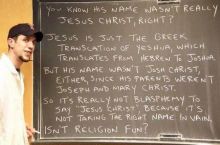 YOU KNOW HIS NAME WASN'T REALLY
JESUS CHRIST, RIGHT?
JESUS IS JUST THE GREEK
TRANSLATION OF YESHUA, WHICH
TRANSLATES FROM HEBREW TO JOSHUA.
BUT HIS NAME WASN'T JOSH CHRIST,
EITHER, SINCE HIS PARENTS WEREN'T
JOSEPH AND MARY CHRIST.
SO IT'S REALLY NOT BLASPHEMY TO
SAY "JESUS CHRIST", BECAUSE IT'S
NOT TAKING THE RIGHT NAME IN VAIN.
ISN'T RELIGION FUN?